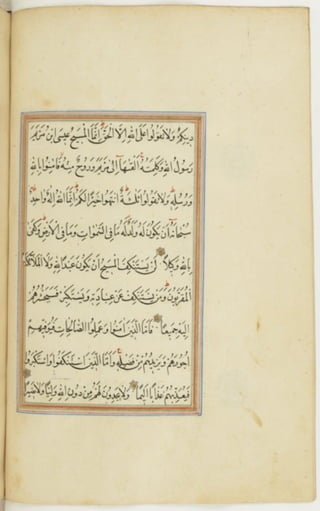 دِينِكُمْ وَلَا تَقُولُوا عَلَى اللهِ إِلَّا الْحَقَّ إِنَّمَا الْمَسِيحُ عِيسَى ابْنُ مَرْيَمَ
رَسُولُ اللهِ وَكَلِمَتُهُ أَلْقَيهَا إِلَى مَرْيَمَ وَرُوحٌ مِنْهُ فَآمِنُوا بِاللهِ
وَرُسُلِهِ وَلَا تَقُولُوا ثَلٰثَةٌ انْتَهُوا خَيْرًا لَكُمْ إِنَّمَا اللهُ إِلٰهٌ وَاحِدٌ
سُبْحَانَهُ أَنْ يَكُونَ لَهُ وَلَدٌ لَهُ مَا فِي السَّمٰوَاتِ وَمَا فِي الْأَرْضِ وَكَفَى
بِاللهِ وَكِيلًا لَنْ يَسْتَنْكِفَ الْمَسِيحُ أَنْ يَكُونَ عَبْدًا لِلهِ وَلَا الْمَلَائِكَةُ
الْمُقَرَّبُونَ وَمَنْ يَسْتَنْكِفْ عَنْ عِبَادَتِهِ وَيَسْتَكْبِرْ فَسَيَحْشُرُهُمْ
إِلَيْهِ جَمِيعًا فَأَمَّا الَّذِينَ آمَنُوا وَعَمِلُوا الصَّالِحَاتِ فَيُوَفِّيهِمْ
أُجُورَهُمْ وَيَزِيدُهُمْ مِنْ فَضْلِهِ وَأَمَّا الَّذِينَ اسْتَنْكَفُوا وَاسْتَكْبَرُوا
فَيُعَذِّبُهُمْ عَذَابًا أَلِيمًا وَلَا يَجِدُونَ لَهُمْ مِنْ دُونِ اللهِ وَلِيًّا وَلَا نَصِيرًا